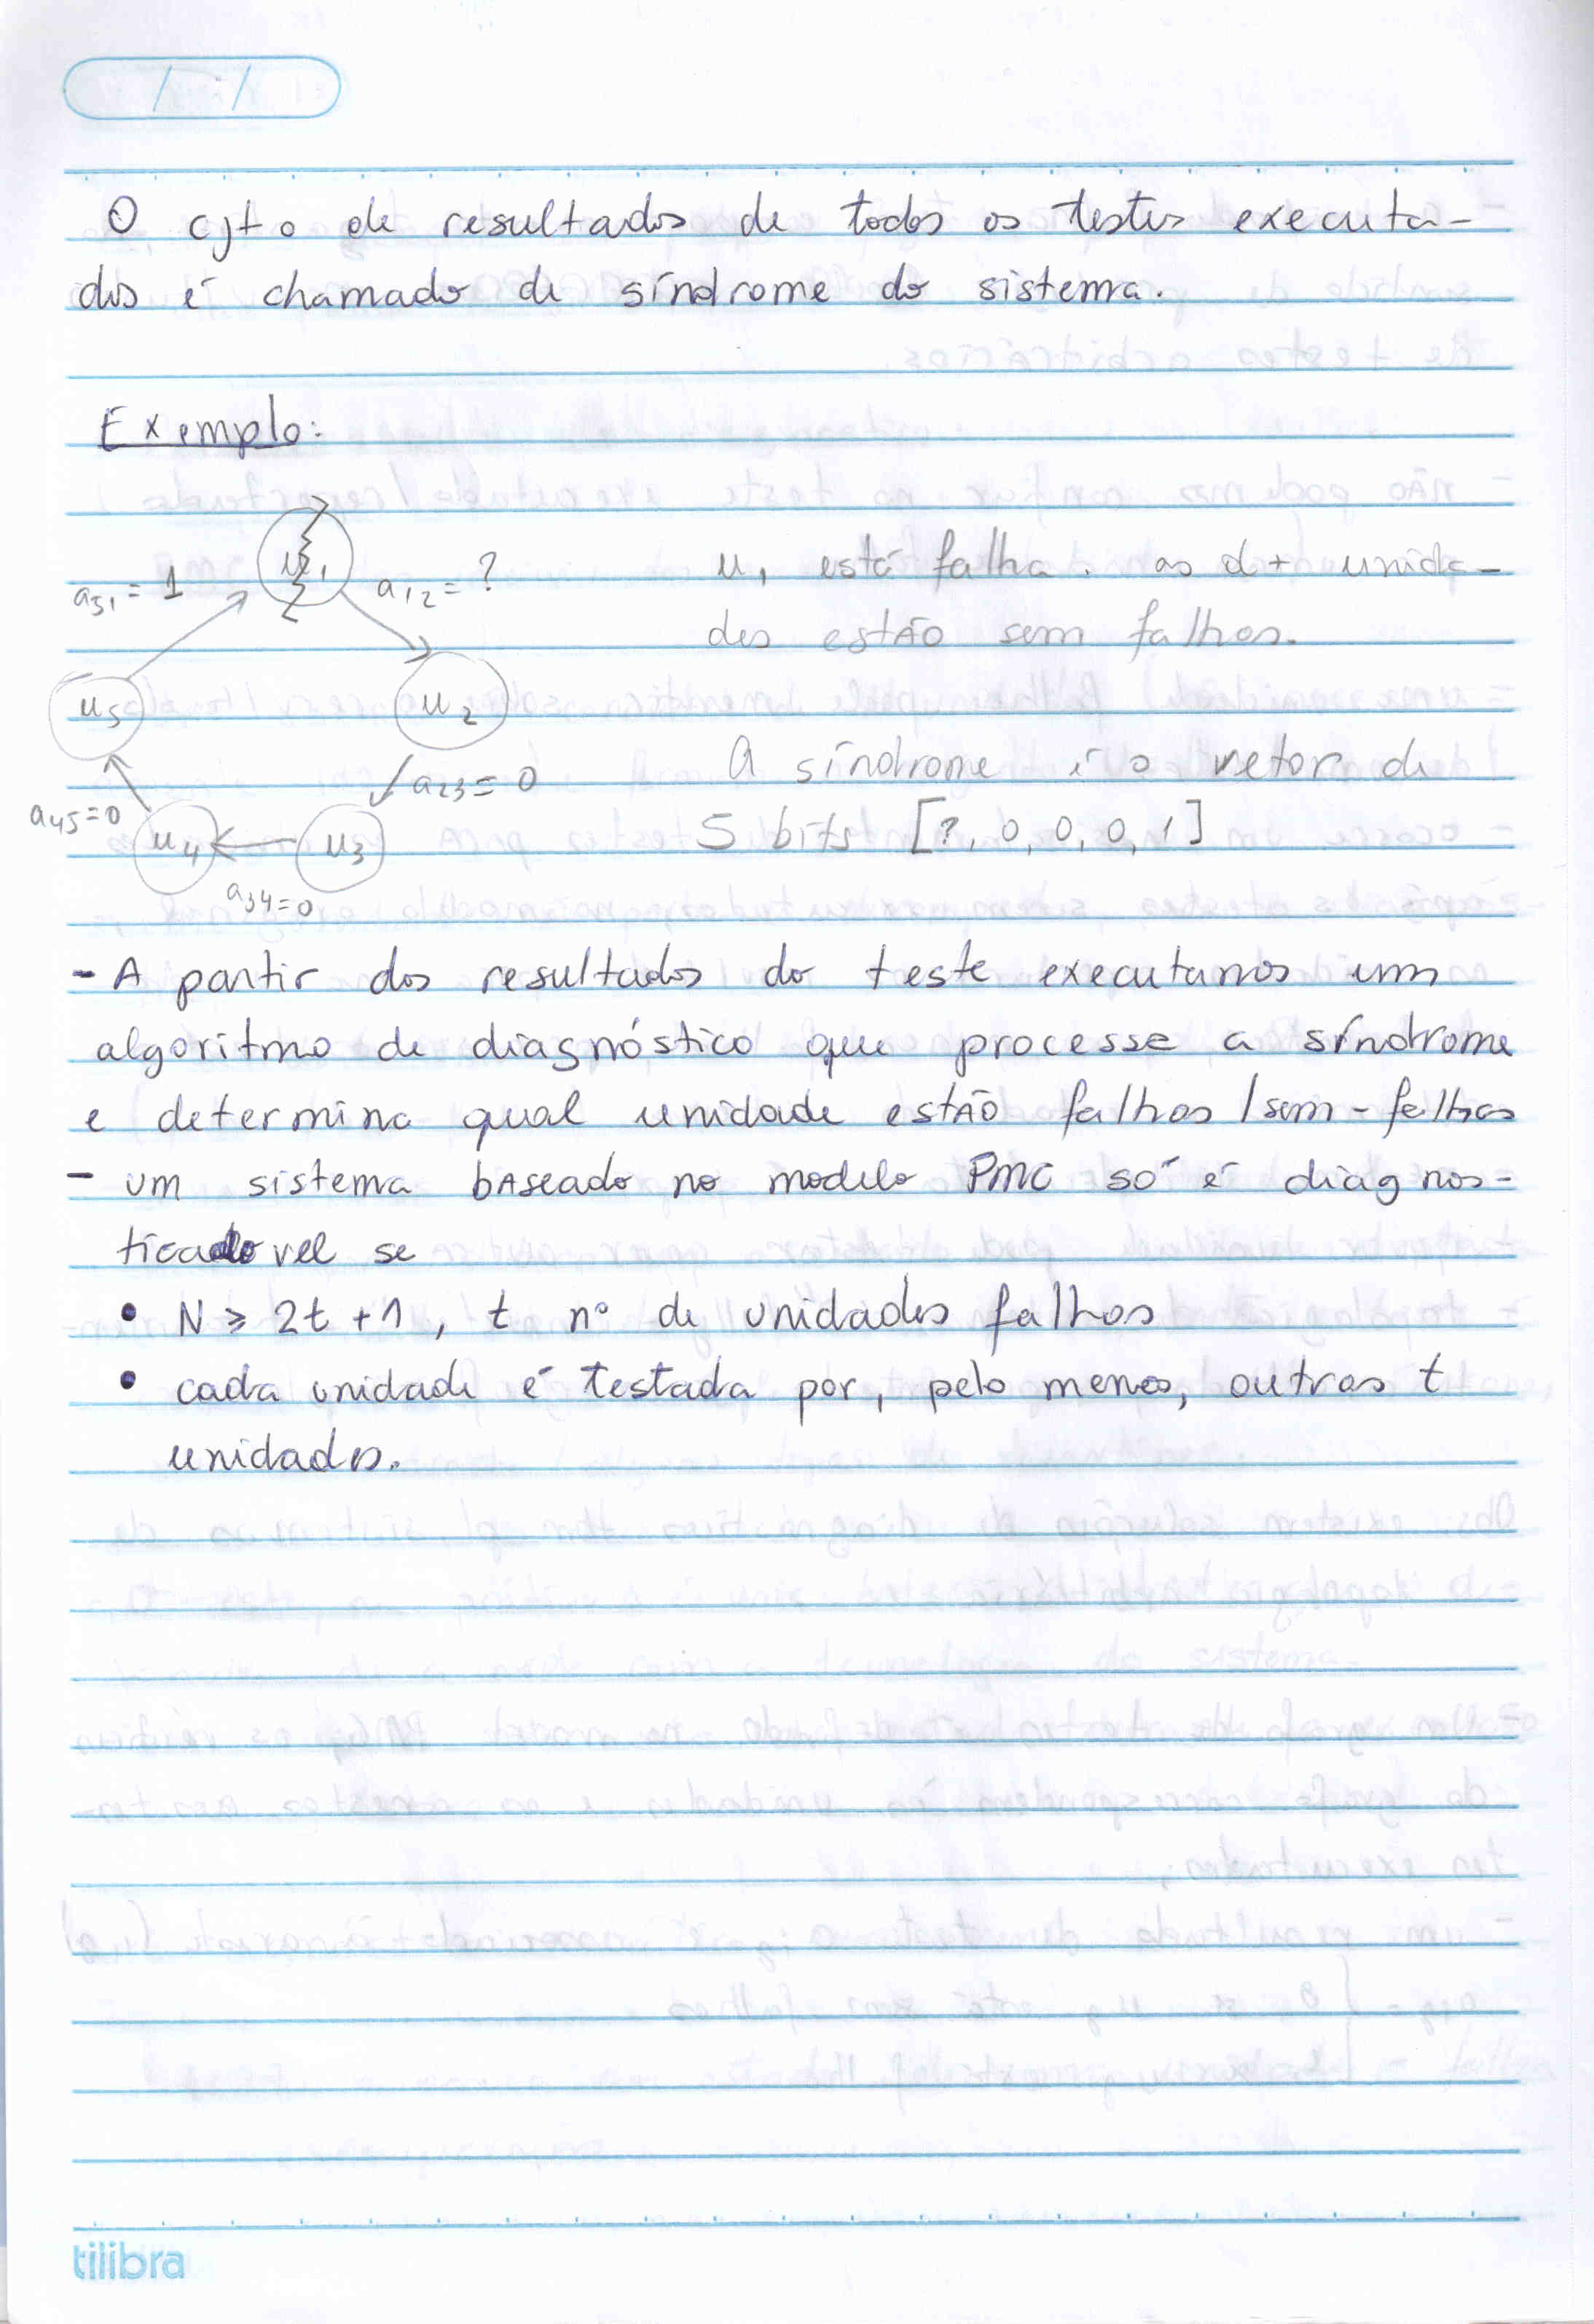 O cjto de resultados de todos os testes executa-
dos é chamado de síndrome do sistema.
Exemplo:
u1
a51 = 1
a12 = ?
u1 está falha. as d+ unida-
des estão sem falhas.
u5
u2
A síndrome é o vetor de
a23 = 0
a45=0
u4
u3
5 bits [?, 0, 0, 0, 1]
a34=0
- A partir dos resultados do teste executamos um
algoritmo de diagnóstico que processe a síndrome
e determina qual unidade estão falhas / sem-falhas
- um sistema baseado no modelo PMC só é diagnos-
ticável se
• N ≥ 2t + 1, t nº de unidades falhas
• cada unidade é testada por, pelo menos, outras t
unidades.
tilibra